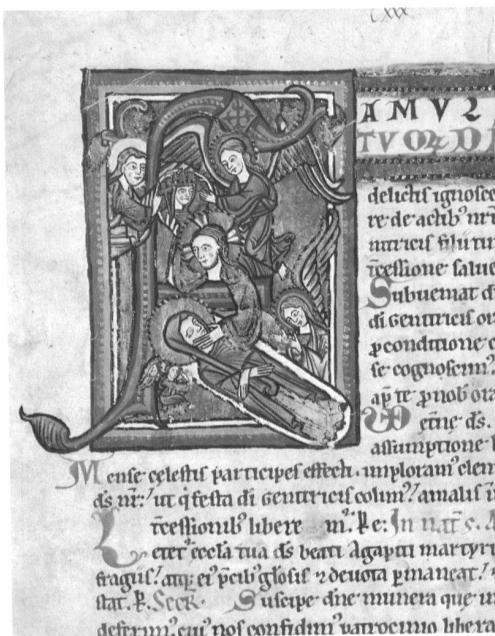 FAMVL
TVOR D
delictis ignosce
re de actib' nri
nitricis filii tui
tcessione salue
Subueniat d
di genitricis or
p conditione c
se cognoscim'
ap te p nob ora
etne ds.
assumptione b
Mense celestis participes effecti. imploram' clem
ds nr: ut q festa di genitricis colim' amalis i
tcessionib' libere m'. P e: In nat s. A
Letet' eccla tua ds beati Agapiti martyri
fragiis: atq; ei' pcib' glosis 7 deuota pmaneat.
stat. P. Secr. Suscipe dne munera que in
deferim' eui' nos confidim' patrocinio libera